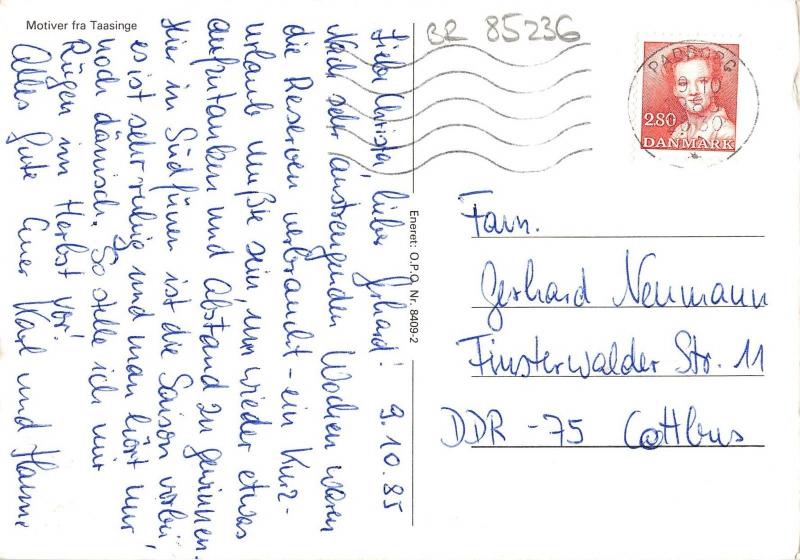 Motiver fra Taasinge
BR 85236
PADBORG
9.10
2.80
DANMARK
Eneret: O.P.O. Nr. 8409-2
9.10.85
Liebe Christa, lieber Gerhard!
Nach sehr anstrengenden Wochen waren
die Reserven verbraucht - ein Kurz-
urlaub mußte sein, um wieder etwas
aufzutanken und Abstand zu gewinnen.
Hier in Südfünen ist die Saison vorbei,
es ist sehr ruhig und man hört nur
noch dänisch. So stelle ich mir
Rügen im Herbst vor!
Alles Gute Euer Karl und Hanne
Fam.
Gerhard Neumann
Finsterwalder Str. 11
DDR -75 Cottbus